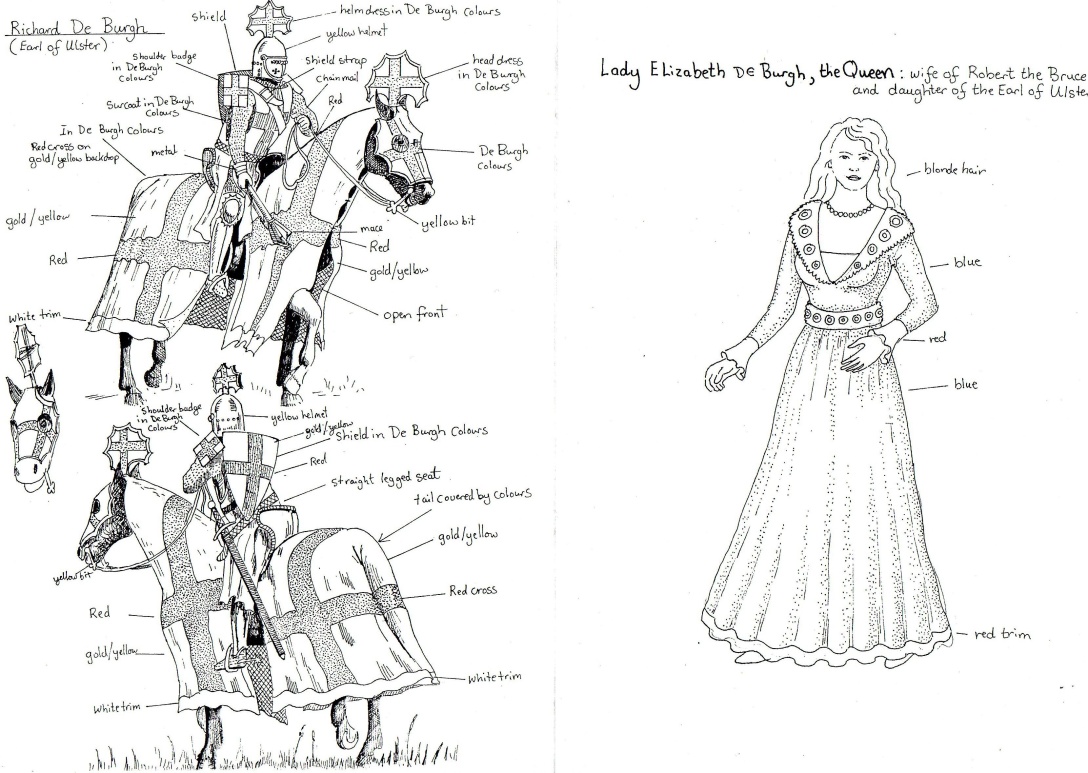 Richard De Burgh
(Earl of Ulster)
shield
helmdress in De Burgh colours
yellow helmet
Shoulder badge
in De Burgh
Colours
shield strap
chainmail
Red
head dress
in De Burgh
Colours
Surcoat in De Burgh
Colours
In De Burgh Colours
Red cross on
gold/yellow backdrop
metal
De Burgh
Colours
gold/yellow
yellow bit
mace
Red
Red
gold/yellow
open front
White trim
Shoulder badge
in De Burgh
Colours
yellow helmet
gold/yellow
Shield in De Burgh Colours
Red
straight legged seat
tail covered by colours
gold/yellow
yellow bit
Red cross
Red
gold/yellow
White trim
White trim
Lady Elizabeth De Burgh, the Queen: wife of Robert the Bruce
and daughter of the Earl of Ulster
blonde hair
blue
red
blue
red trim